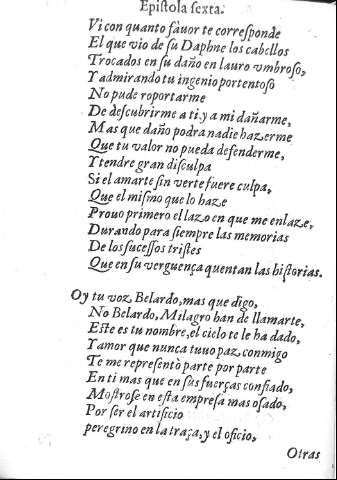 Epistola sexta.
Vi con quanto fàuor te corresponde
El que vio de su Daphne los cabellos
Trocados en su daño en lauro vmbroso,
Y admirando tu ingenio portentoso
No pude roportarme
De descubrirme a ti, y a mi dañarme,
Mas que daño podra nadie hazerme
Que tu valor no pueda defenderme,
Y tendre gran disculpa
Si el amarte sin verte fuere culpa,
Que el mismo que lo haze
Prouo primero el lazo en que me enlaze,
Durando para siempre las memorias
De los sucessos tristes
Que en su verguença quentan las historias.
Oy tu voz, Belardo, mas que digo,
No Belardo, Milagro han de llamarte,
Este es tu nombre, el cielo te le ha dado,
Y amor que nunca tuuo paz conmigo
Te me representò parte por parte
En ti mas que en sus fuerças confiado,
Mostrose en esta empresa mas osado,
Por ser el artificio
peregrino en la traça, y el oficio,
Otras